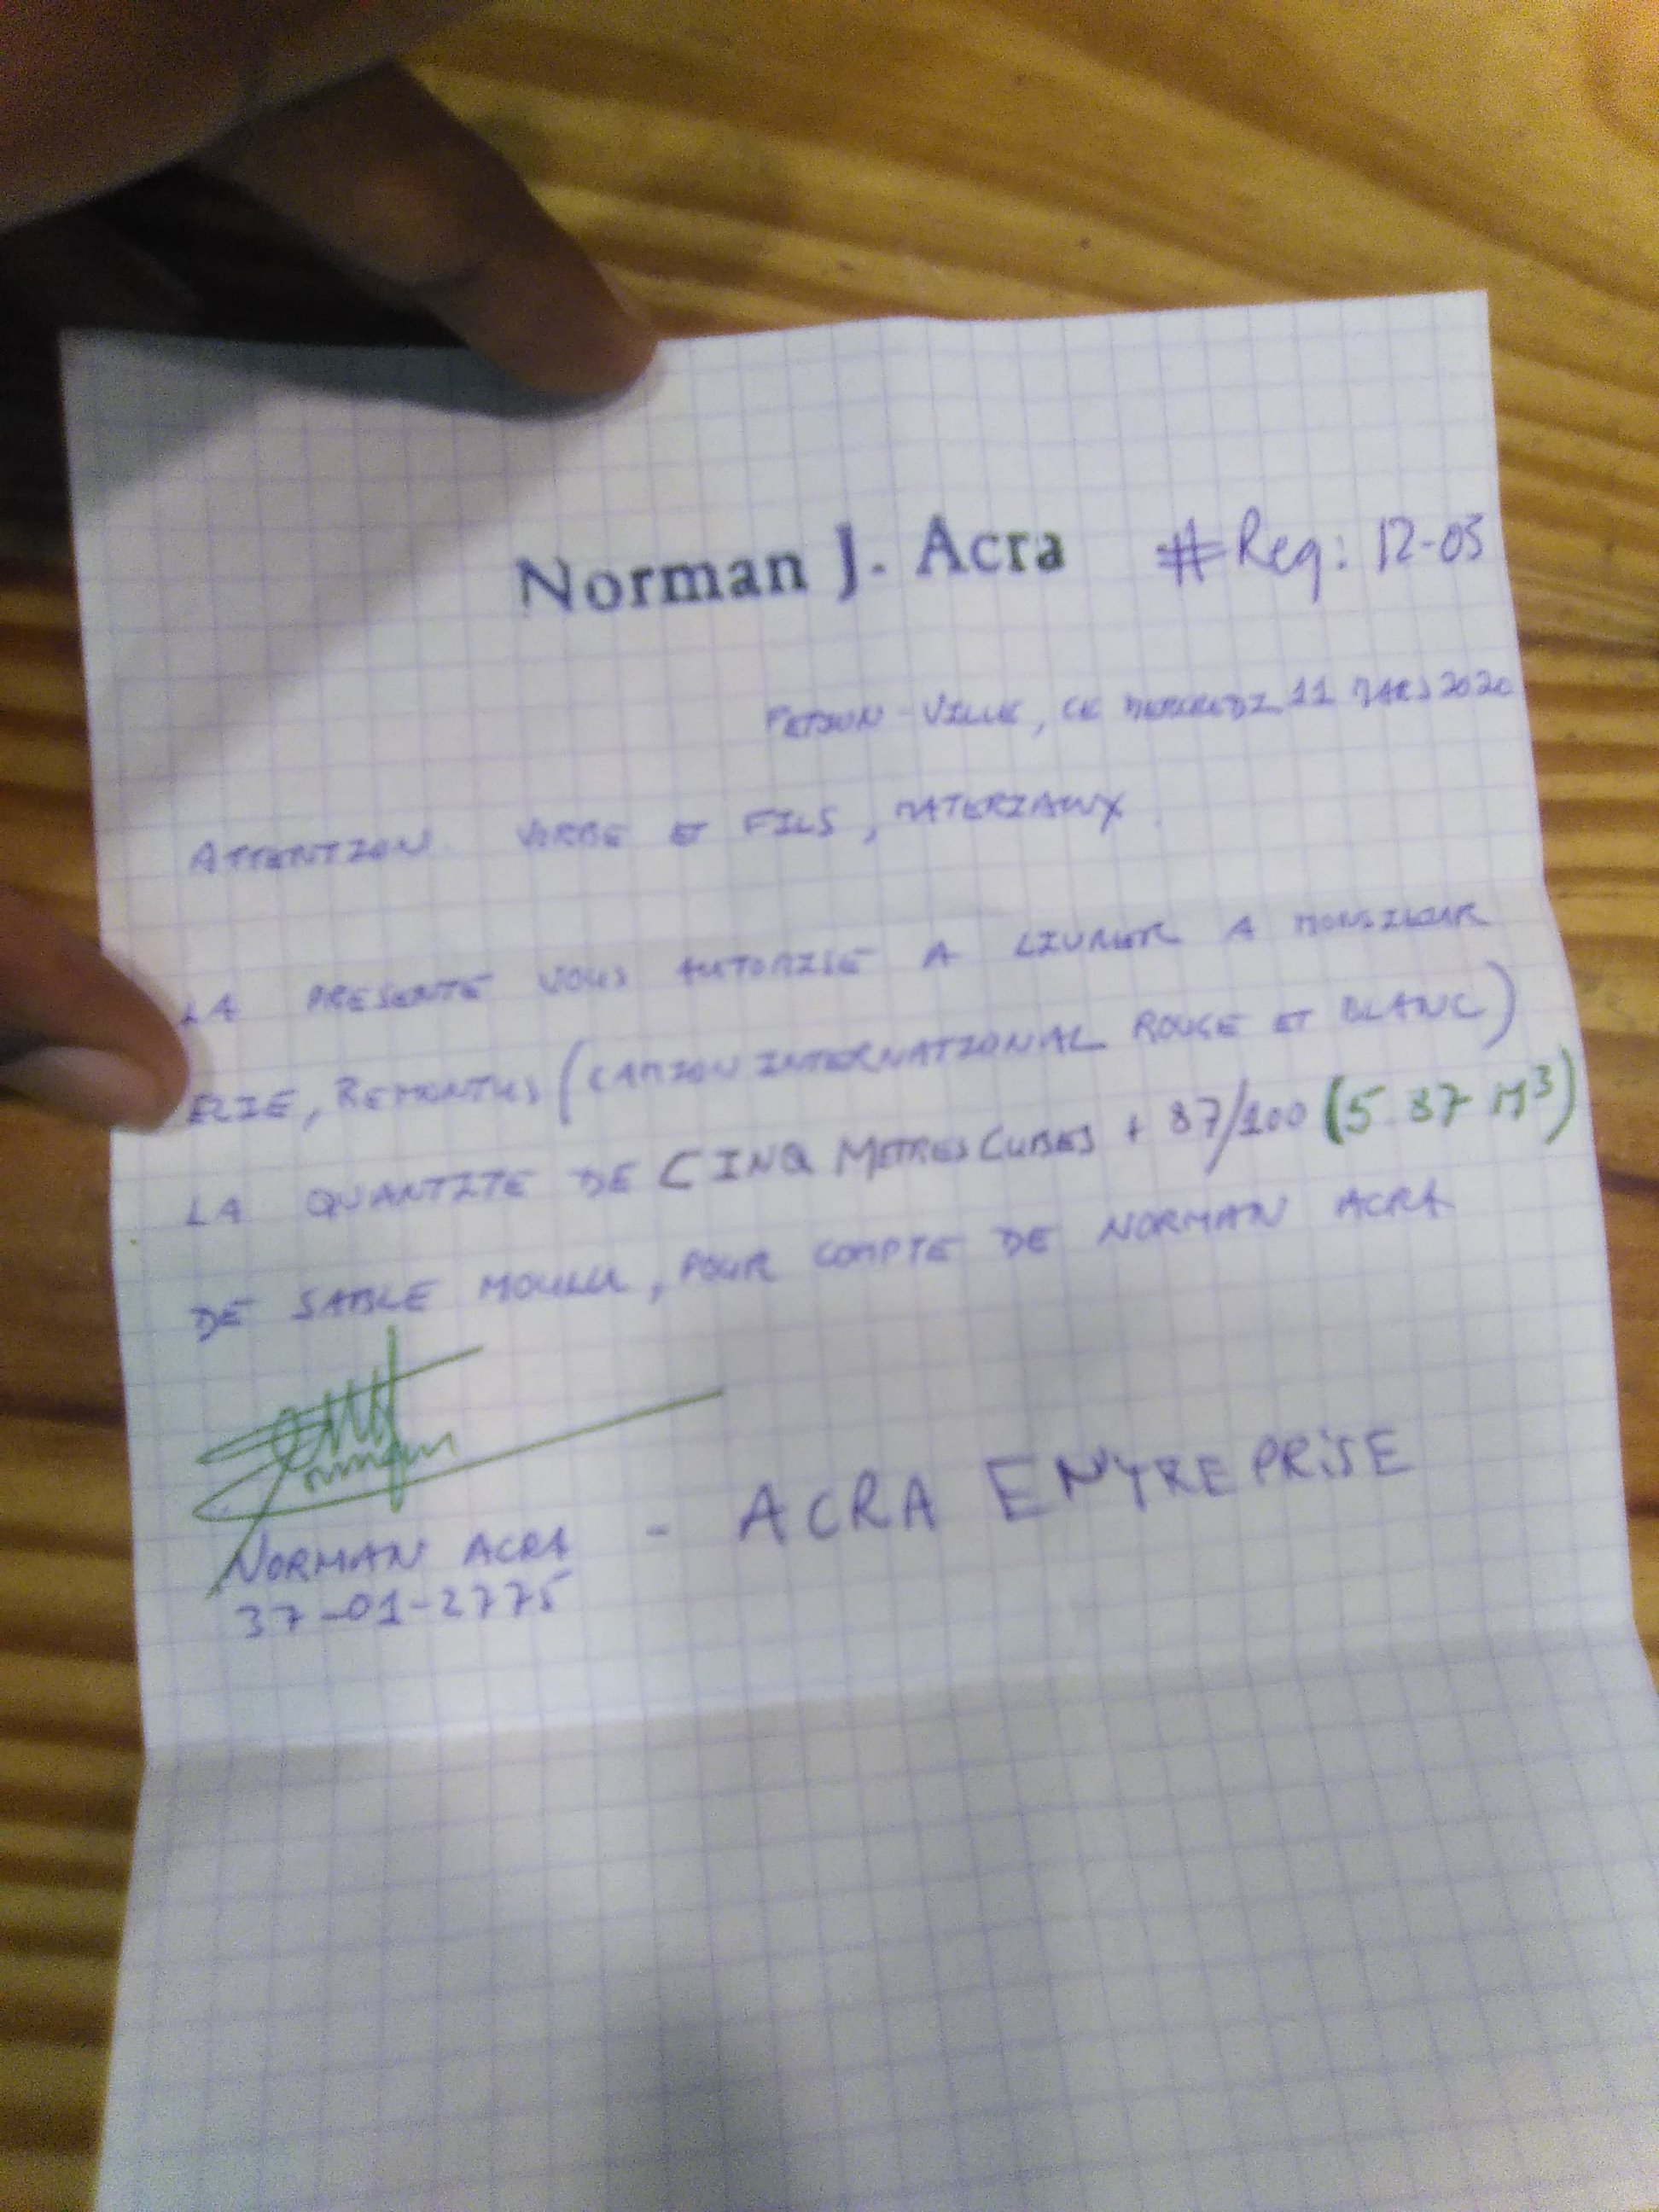 Norman J. Acra #Req: 12-03
PETION-VILLE, CE MERCREDI 11 MARS 2020
ATTENTION VORBE ET FILS, MATERIAUX
LA PRESENTE VOUS AUTORISE A LIVRER A MONSIEUR
ELIE, REMONTUS (CAMION INTERNATIONAL ROUGE ET BLANC)
LA QUANTITE DE CINQ METRES CUBES + 87/100 (5.87 M³)
DE SABLE MOULU, POUR COMPTE DE NORMAN ACRA
NORMAN ACRA - ACRA ENTREPRISE
37-01-2775